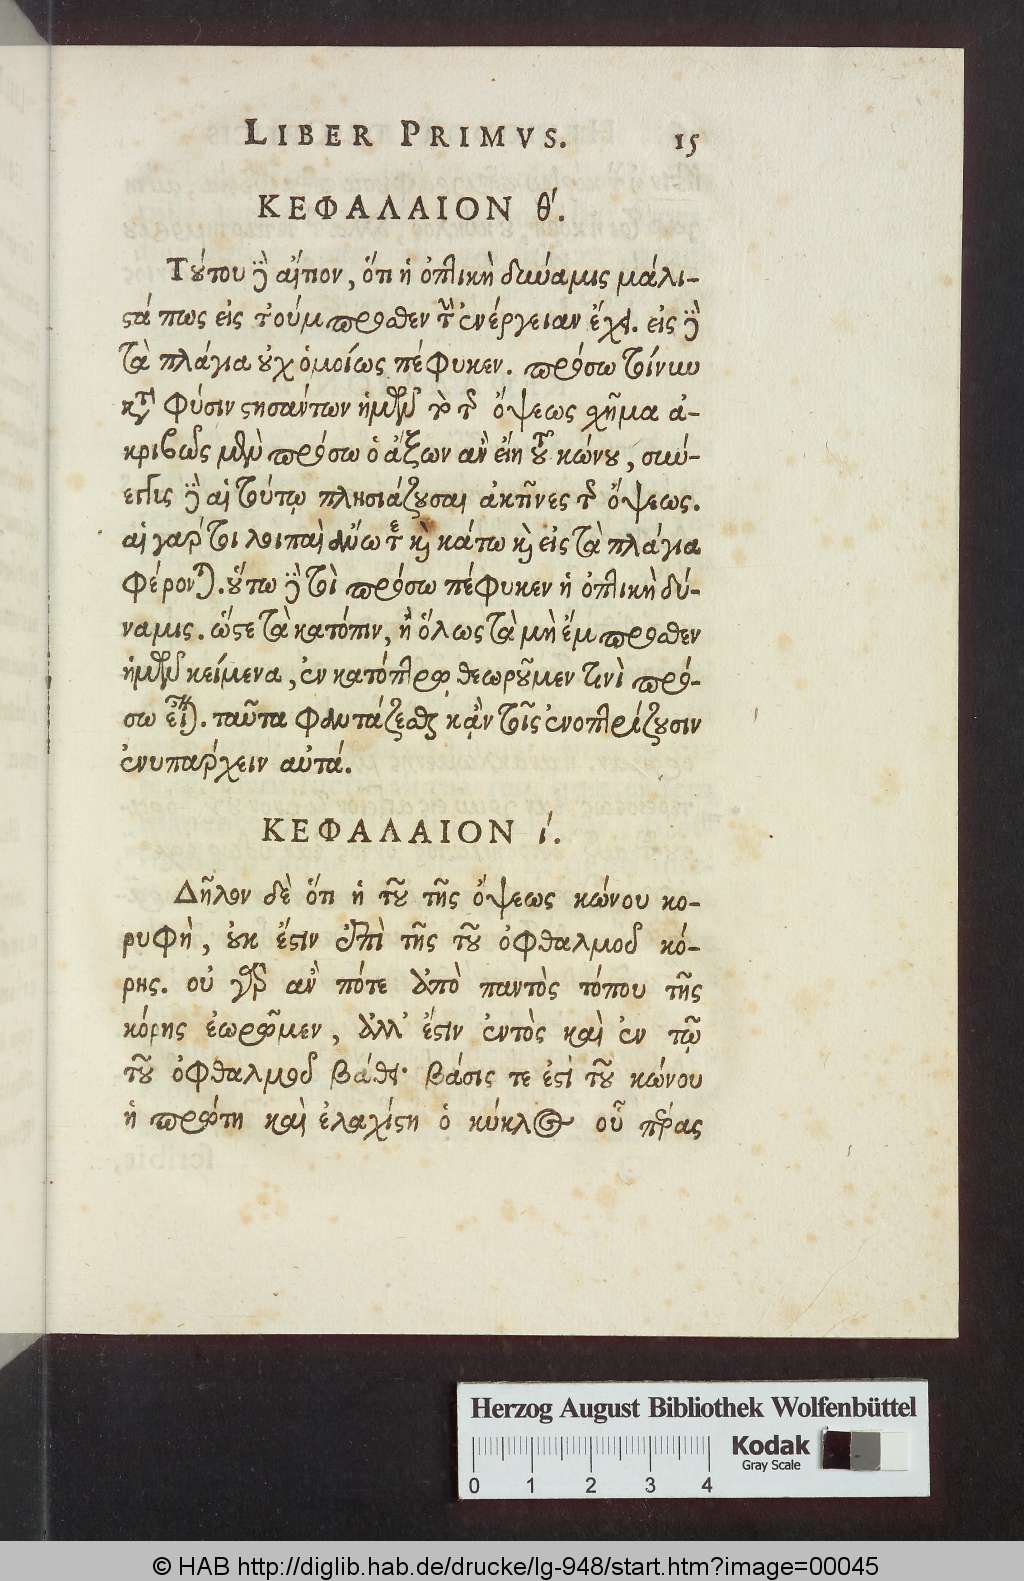 LIBER PRIMVS. 15
ΚΕΦΑΛΑΙΟΝ θ́.
Τούτου δὲ αἴτιον, ὅτι ἡ ὀπτικὴ δύναμις μάλι-
στά πως εἰς τοὔμπροσθεν τὴν ἐνέργειαν ἔχει. εἰς δὲ
τὰ πλάγια οὐχ ὁμοίως πέφυκεν. πρόσω τείνειν
κατὰ φύσιν στησάντων ἡμῶν τὸ τῆς ὄψεως σχῆμα ἀ-
κριβῶς μὲν πρόσω ὁ ἄξων ἂν εἴη τοῦ κώνου, σύν-
εγγυς δὲ αἱ τούτῳ πλησιάζουσαι ἀκτῖνες τῆς ὄψεως.
αἱ γάρ τοι λοιπαὶ ἄνω τε καὶ κάτω καὶ εἰς τὰ πλάγια
φέρονται. οὕτω δὲ τοι πρόσω πέφυκεν ἡ ὀπτικὴ δύ-
ναμις. ὥστε τὰ κατόπιν, ἢ ὅλως τὰ μὴ ἔμπροσθεν
ἡμῶν κείμενα, ἐν κατόπτρῳ θεωροῦμεν τινὶ πρό-
σω ταῦτα φαντάζεσθαι κἂν τοῖς ἐνοπτρίζουσιν
ἐνυπάρχειν αὐτά.
ΚΕΦΑΛΑΙΟΝ ί.
Δῆλον δὲ ὅτι ἡ τοῦ τῆς ὄψεως κώνου κο-
ρυφὴ, οὐκ ἔστιν ἐπὶ τῆς τοῦ ὀφθαλμοῦ κό-
ρης. οὐ γὰρ ἂν πότε ἀπὸ παντὸς τόπου τῆς
κόρης ἑωρῶμεν, ἀλλ' ἔστιν ἐντὸς καὶ ἐν τῷ
τοῦ ὀφθαλμοῦ βάθει· βάσις τε ἐστὶ τοῦ κώνου
ἡ πρώτη καὶ ἐλαχίστη ὁ κύκλος οὗ πέρας
Herzog August Bibliothek Wolfenbüttel
Kodak
Gray Scale
0 1 2 3 4
© HAB http://diglib.hab.de/drucke/lg-948/start.htm?image=00045